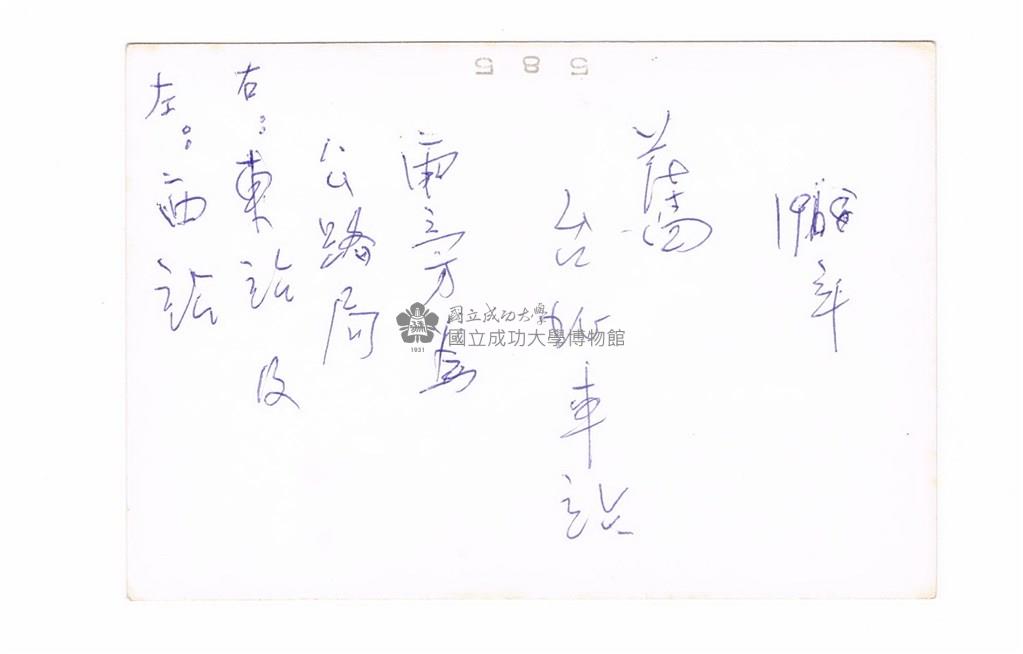 585
1968年
舊
台北車站
兩旁為
公路局
右：東站及
左：西站
國立成功大學
國立成功大學博物館
1931